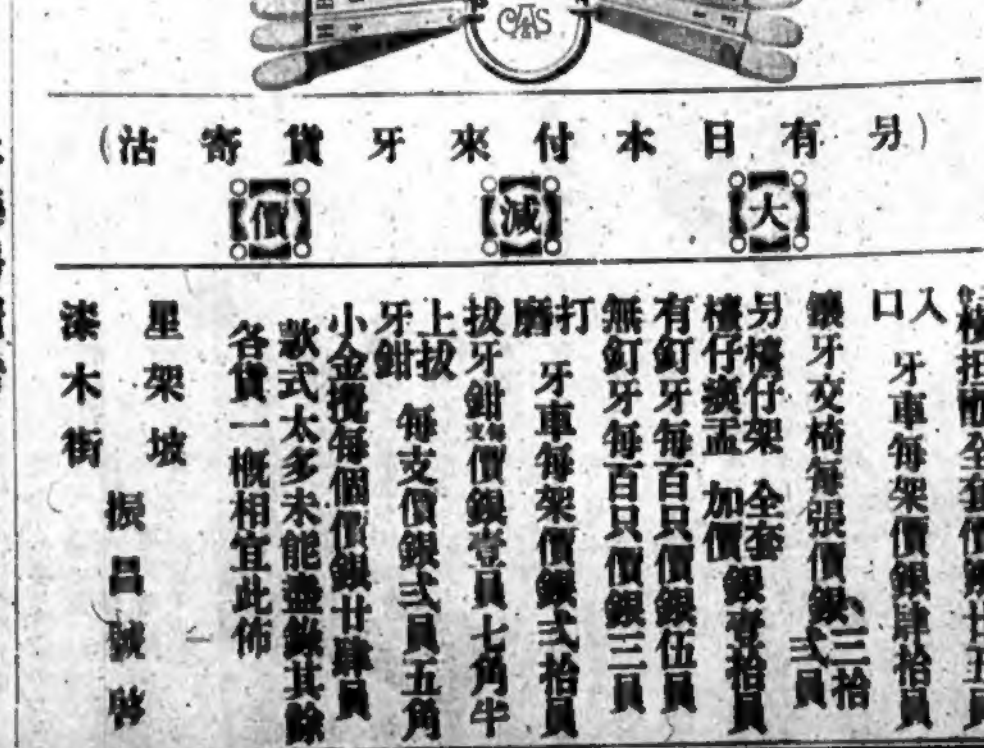 CAS
(另有日本付來牙貨寄沽)
大減價
全套價銀廿五員
入口牙車每架價銀肆拾員
鑲牙交椅每張價銀三拾弍員
另檯仔架檯仔痰盂全套加價銀壹拾員
有釘牙每百只價銀伍員
無釘牙每百只價銀三員
打磨牙車每架價銀弍拾員
拔牙鉗每支價銀壹員七角半
上拔牙鉗每支價銀弍員五角
小金攪每個價銀廿肆員
欵式太多未能盡錄其餘
各貨一概相宜此佈
星架坡
漆木街
振昌號啓